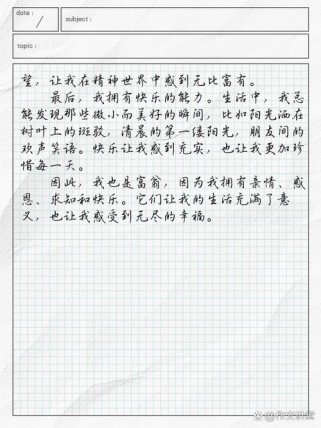 date :
subject :
/
topic :
望，让我在精神世界中感到无比富有。
最后，我拥有快乐的能力。生活中，我总
能发现那些微小而美好的瞬间，比如阳光洒在
树叶上的斑驳，清晨的第一缕阳光，朋友间的
欢声笑语。快乐让我感到充实，也让我更加珍
惜每一天。
因此，我也是富翁，因为我拥有亲情、感
恩、求知和快乐。它们让我的生活充满了意
义，也让我感受到无尽的幸福。